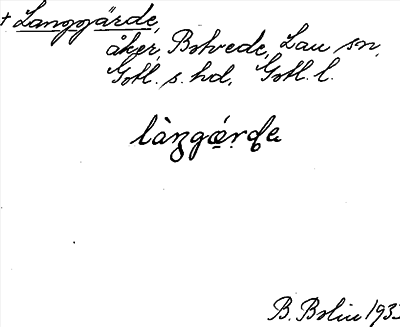 + Langgärde,
åker, Botvede, Lau sn,
Gotl. s. hd, Gotl. l.
B. Bolin 193